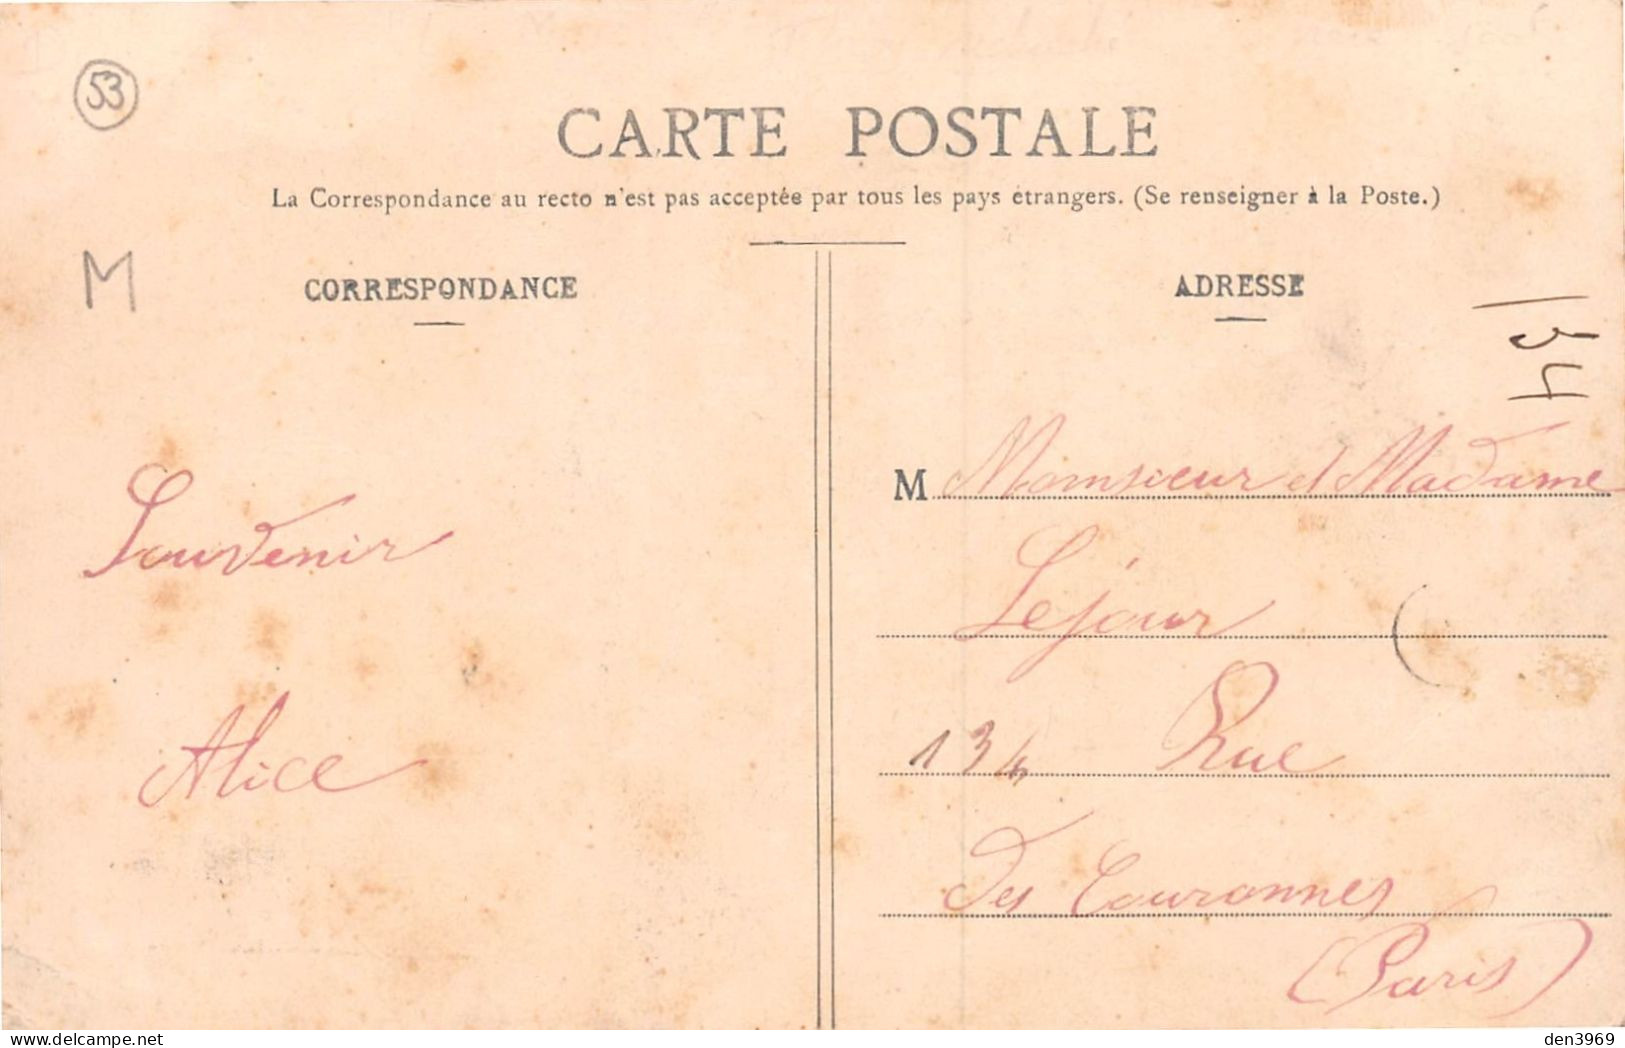 53
CARTE POSTALE
La Correspondance au recto n'est pas acceptée par tous les pays étrangers. (Se renseigner à la Poste.)
M
CORRESPONDANCE
Souvenir
Alice
ADRESSE
134
M Monsieur et Madame
Lejour
134 Rue
des Couronnes
(Paris)
den3969